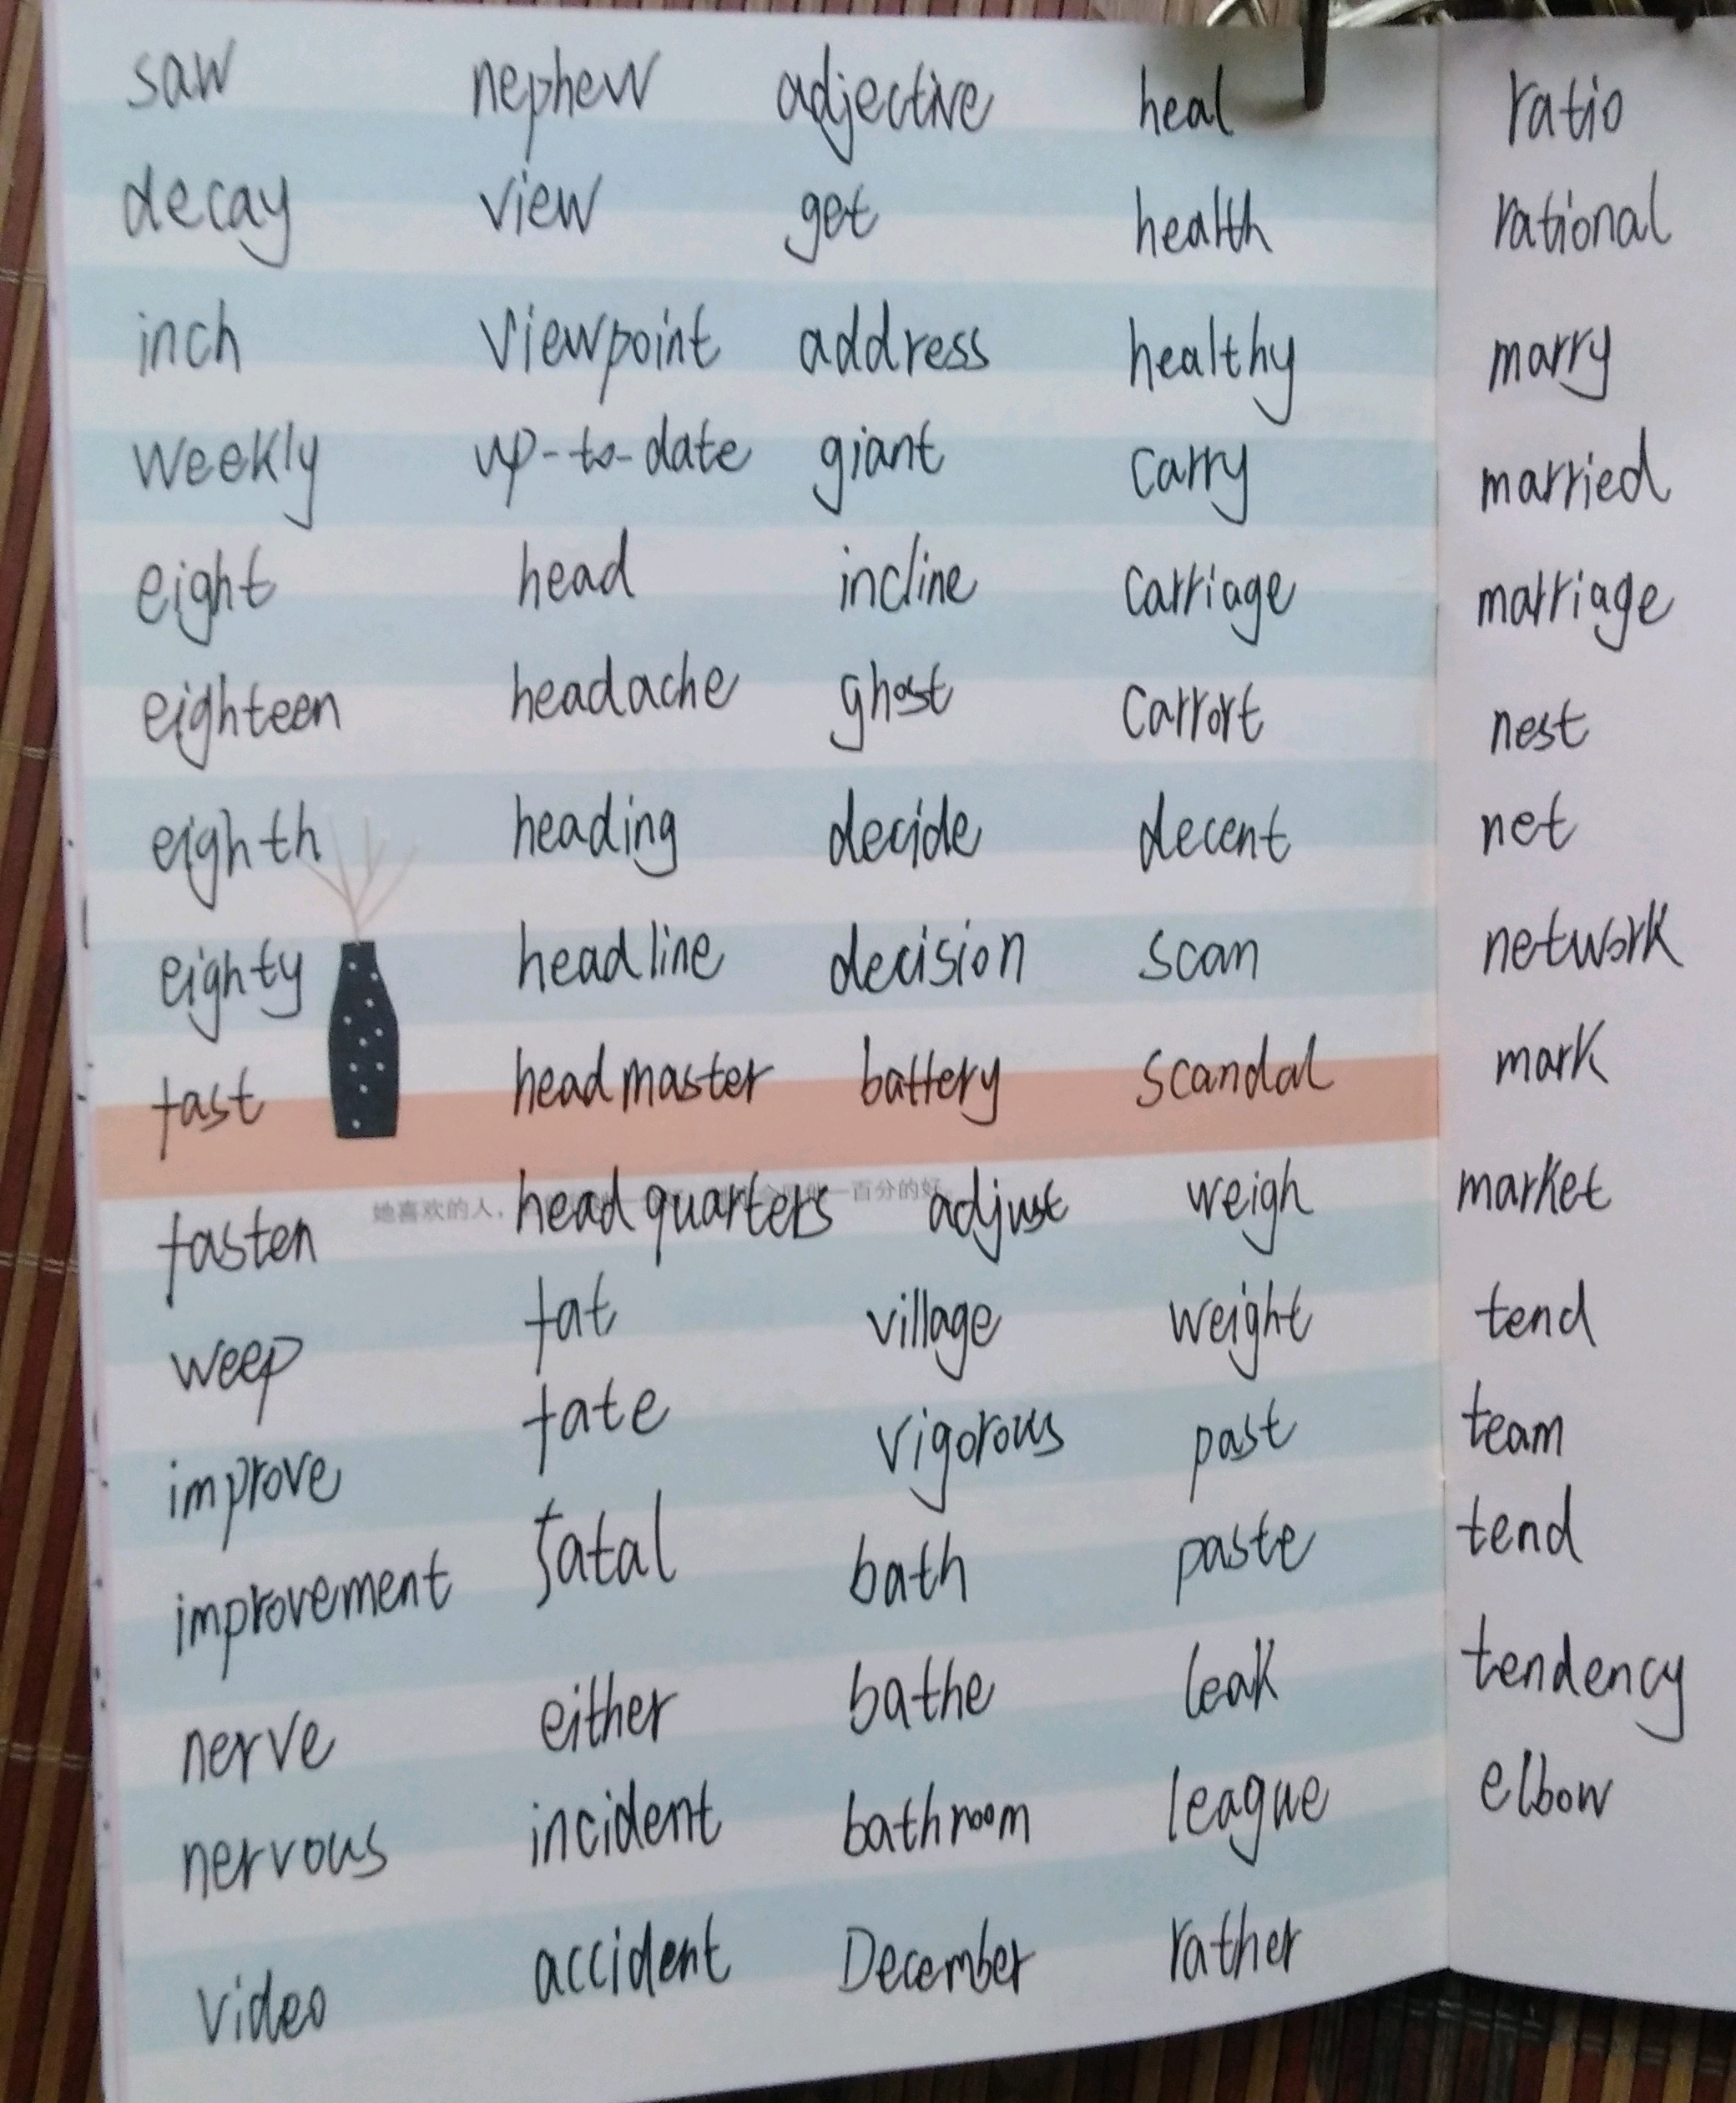 saw nephew adjective heal ratio
decay view get health rational
inch viewpoint address healthy marry
weekly up-to-date giant carry married
eight head incline carriage marriage
eighteen headache ghost carrort nest
eighth heading decide decent net
eighty headline decision scan network
fast headmaster battery scandal mark
她喜欢的人, 一百分的好
fasten headquarters adjust weigh market
weep fat village weight tend
improve fate vigorous past team
improvement fatal bath paste tend
nerve either bathe leak tendency
nervous incident bathroom league elbow
video accident December rather